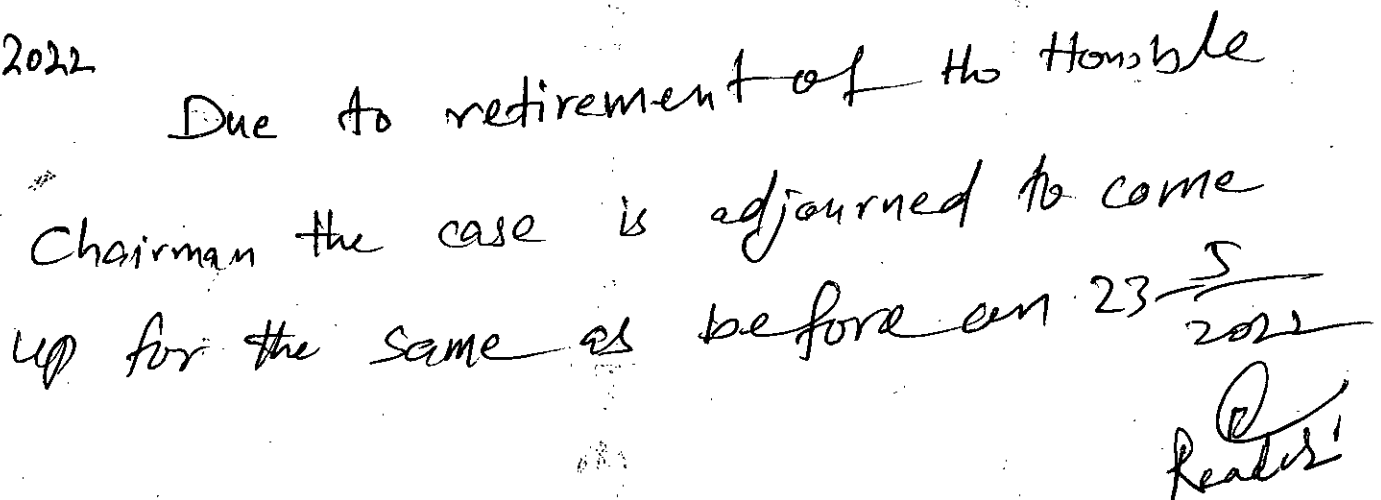 2022
Due to retirement of the Honoble
Chairman the case is adjourned to come
up for the same as before on 23-5/2022
Reader